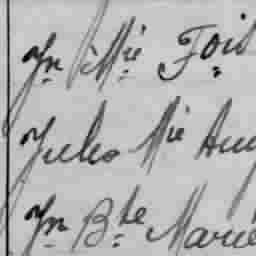 Jn Mie Fois
Jules Mie Aug
Jn Bte Marie